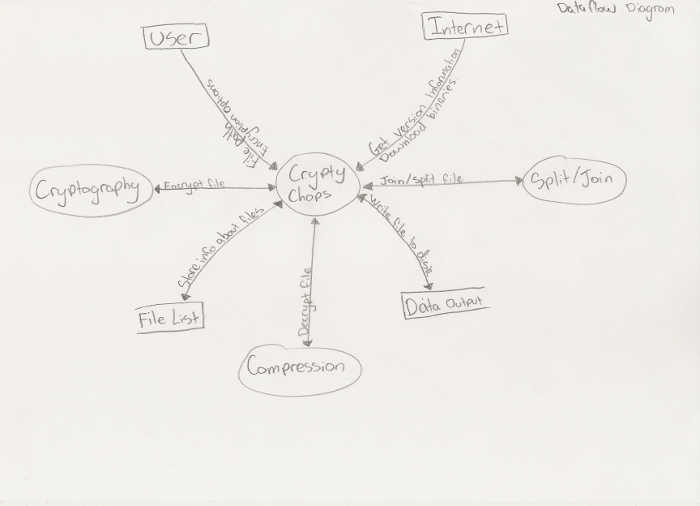 Dataflow Diagram
User
Internet
File path
Encryption options
Get version information
Download binaries
Cryptography
Encrypt file
Crypty
Chops
Join/split file
Split/Join
Store info about files
Write file to disk
File List
Decrypt file
Data Output
Compression